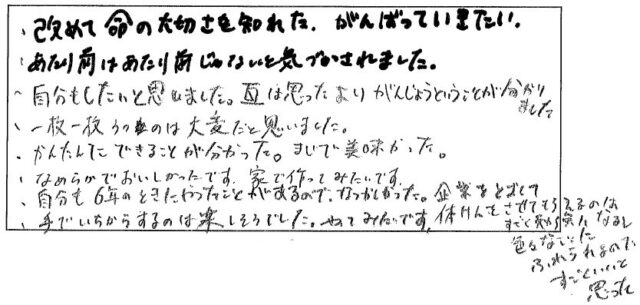 ・改めて命の大切さを知れた。がんばっていきたい。
・あたり前はあたり前じゃないと気づかされました。
・自分もしたいと思いました。豆は思ったよりがんじょうということが分かりました
・一枚一枚うつのは大変だと思いました。
・かんたんにできることが分かった。まじで美味かった。
・なめらかでおいしかったです。家で作ってみたいです。
・自分も6年のときたわったことがあるので、なつかしかった。
・手でいちからするのは楽しそうでした。やってみたいです。
企業をとおして
体けんをさせてもらえるのは
すごく
色々な
ふれられるのだ
すごいいと
思った